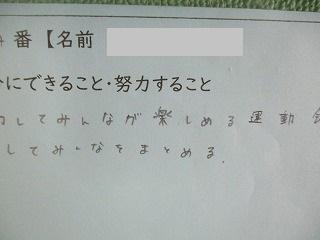 番【名前
にできること・努力すること
してみんなが楽しめる運動
してみんなをまとめる.